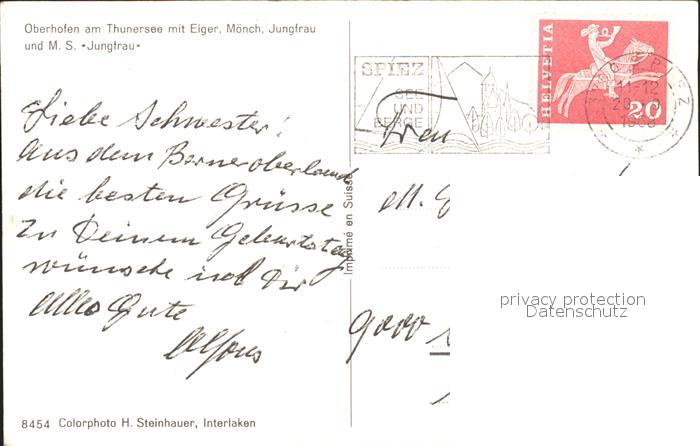 Oberhofen am Thunersee mit Eiger, Mönch, Jungfrau
und M. S. «Jungfrau»
SPIEZ
SEE
UND
BERGE
HELVETIA
20
SPIEZ
11-12
Liebe Schwester!
Aus dem Berneroberland
die besten Grüsse
Zu Deinem Geburtstag
wünsche ich Dir
Alles Gute
Alfons
Imprimé en Suisse
Frau
M.
9000
privacy protection
Datenschutz
8454 Colorphoto H. Steinhauer, Interlaken